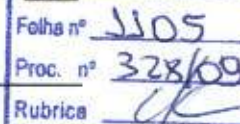 Folha nº 1105
Proc. nº 328/09
Rubrica